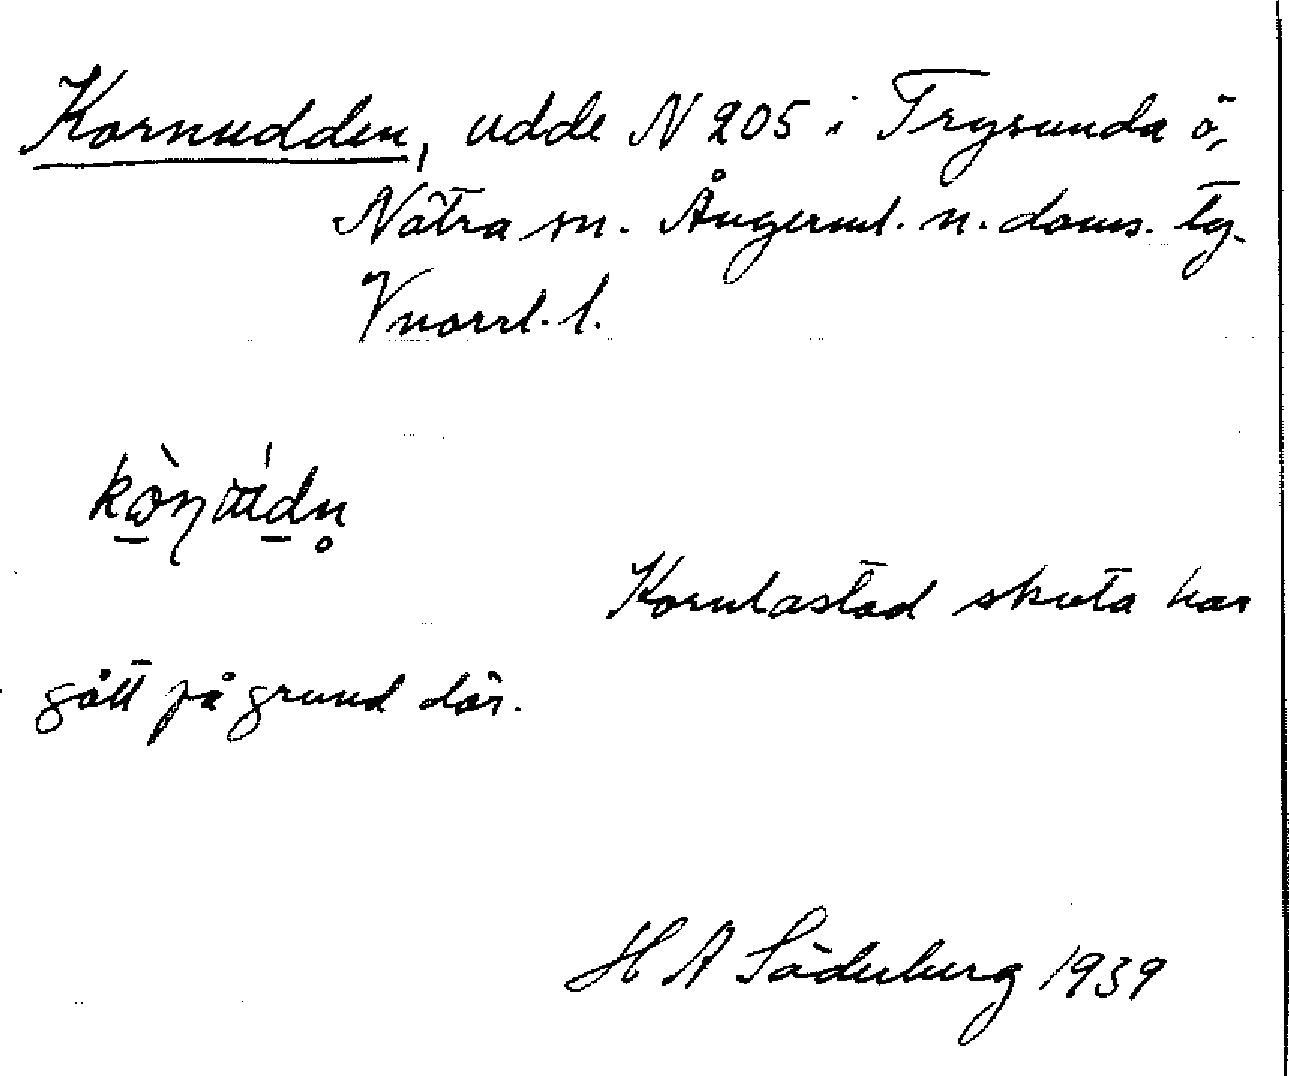 Kornudden, udde N 205 i Trysunda ö,
Nätra sn. Ångerml. n. doms. tg.
Vnorrl. l.
Kornlastad skuta har
gått på grund där.
H A Söderberg 1939